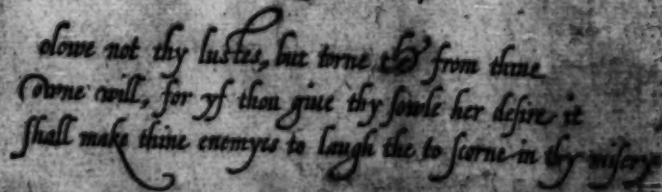 olowe not thy lustes, but torne thy from thine
owne will, for yf thou giue thy sowle her desire it
shall make thine enemyes to laugh the to scorne in thy misery